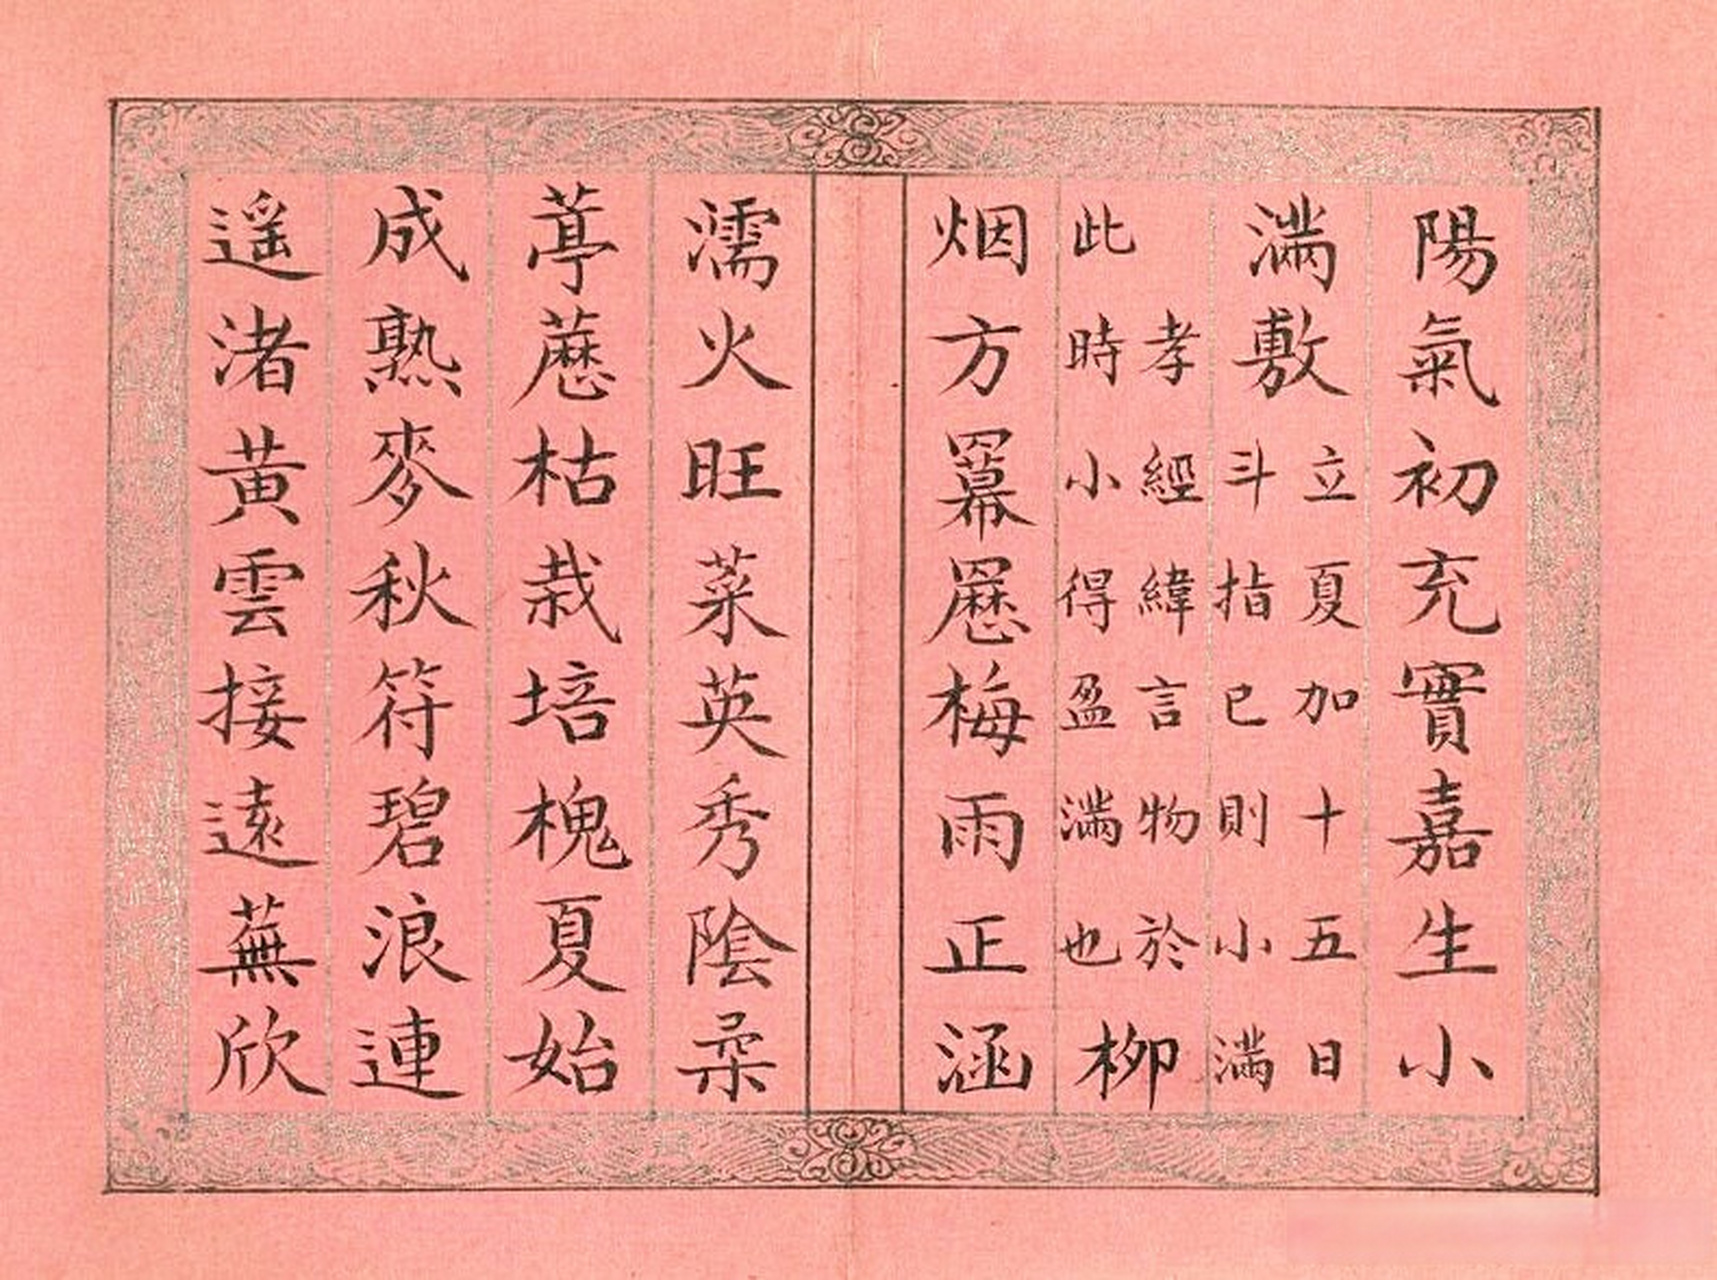 陽氣初充實嘉生小
滿敷
立夏加十五日
斗指巳則小滿
孝經緯言物於
此時小得盈滿也
柳
烟方羃䍥梅雨正涵
濡火旺菜英秀陰柔
葶藶枯栽培槐夏始
成熟麥秋符碧浪連
遥渚黄雲接遠蕪欣